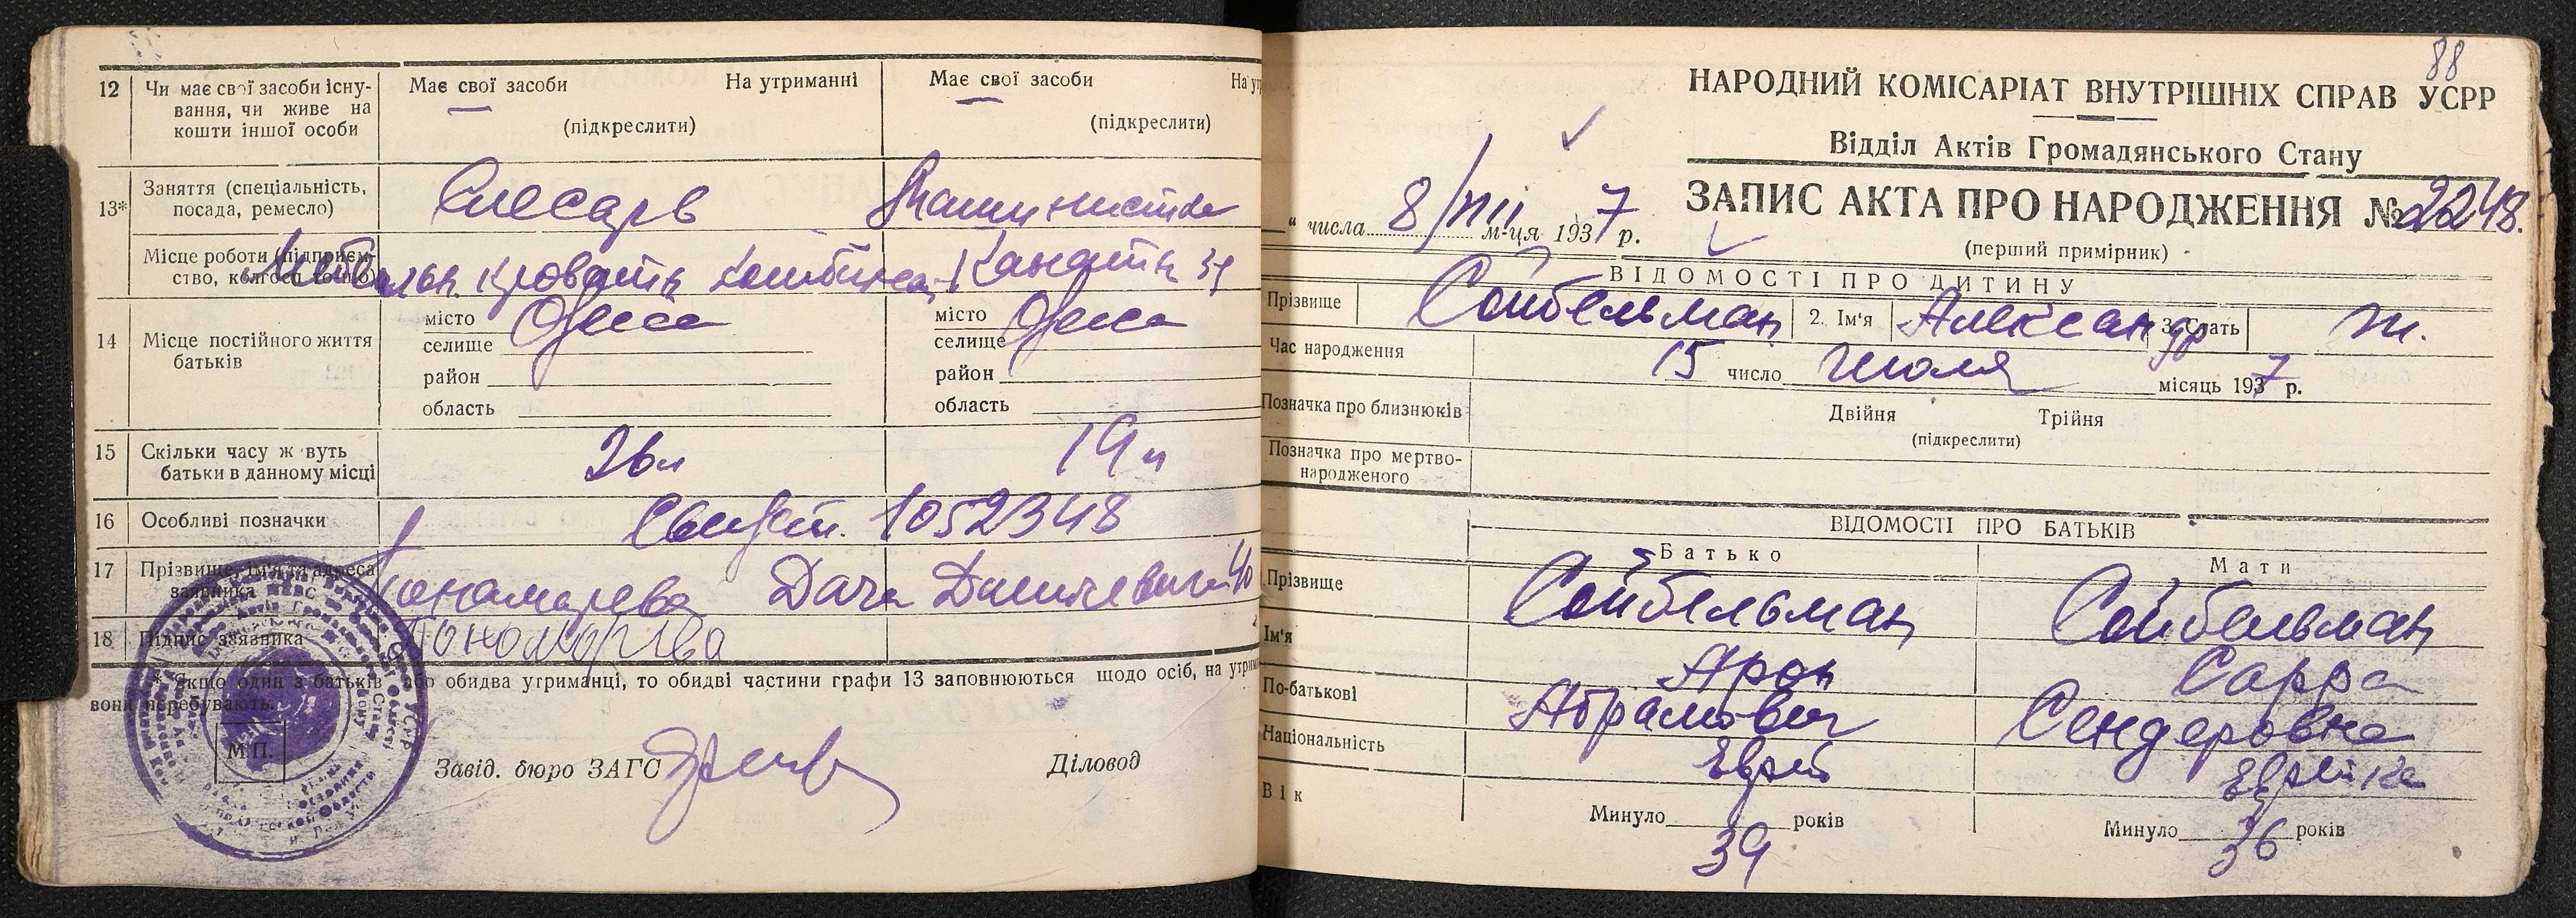 12 Чи має свої засоби існу-
вання, чи живе на
кошти іншої особи
Має свої засоби На утриманні
(підкреслити)
Має свої засоби На ут
(підкреслити)
13* Заняття (спеціальність,
посада, ремесло)
Слесарь Машинистка
Місце роботи (підприєм-
ство, колгосп
Кровати Канатн 39
14 Місце постійного життя
батьків
місто Одесса
селище
район
область
місто Одесса
селище
район
область
15 Скільки часу живуть
батьки в данному місці
26 л 19 л
16 Особливі позначки
Свидет. 1052348
17 Прізвище, ім'я та адреса
заявника
Пономарева Дача 40
18 Підпис заявника
Пономарева
* Якщо один з батьків або обидва утриманці, то обидві частини графи 13 заповнюються щодо осіб, на утрим
вони перебувають.
М.П.
Завід. бюро ЗАГС
Діловод
88
НАРОДНИЙ КОМІСАРІАТ ВНУТРІШНІХ СПРАВ УСРР
Відділ Актів Громадянського Стану
ЗАПИС АКТА ПРО НАРОДЖЕННЯ № 2248.
(перший примірник)
" числа 8/VIII м-ця 1937 р.
ВІДОМОСТІ ПРО ДИТИНУ
Прізвище Сойбельман 2. Ім'я Александр 3. Стать м.
Час народження 15 число июля місяць 1937 р.
Позначка про близнюків
Двійня Трійня
(підкреслити)
Позначка про мертво-
народженого
ВІДОМОСТІ ПРО БАТЬКІВ
Батько Мати
Прізвище Сойбельман Сойбельман
Ім'я Арон Сарра
По-батькові Абрамович Сендеровна
Національність Еврей Еврейка
Вік Минуло 39 років Минуло 36 років